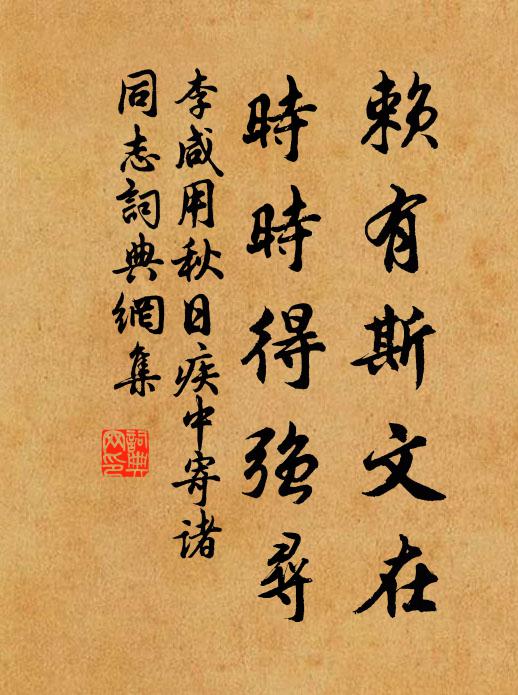 賴有斯文在
時時得強尋
李咸用秋日疾中寄諸
同志詞典網集
詞典
网印